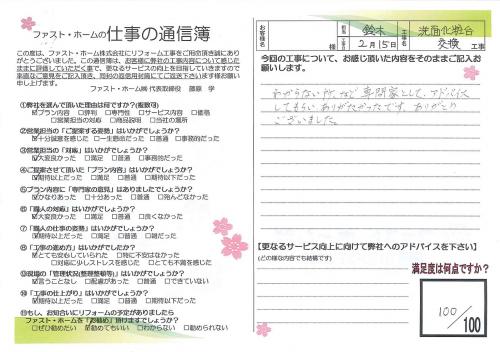 ファスト・ホームの仕事の通信簿
この度は、ファスト・ホーム株式会社にリフォーム工事をご用命頂き誠にあり
がとうございました。この通信簿は、お客様に弊社の工事内容について感じた
ままに評価していただく事で、更なるサービスの向上を目指していきますので
率直なご意見をご記入頂き、同封の返信用封筒にてご返送下さいます様お願い
申し上げます。
ファスト・ホーム㈱ 代表取締役 藤原 学
①弊社を選んで頂いた理由は何ですか?(複数可)
☑プラン内容 □評判 □専門性 □サービス内容 □価格
□営業担当の対応 □商品説明 □当社の雰囲気
②営業担当の「ご提案する姿勢」はいかがでしたか?
☑十分誠意を感じた □一生懸命だった □普通 □事務的だった
③営業担当の「対応」はいかがでしたか?
☑大変良かった □満足 □普通 □事務的だった
④ご提案させて頂いた「プラン内容」はいかがでしたか?
☑期待以上だった □満足 □普通 □期待以下だった
⑤プラン内容に「専門家の意見」はありましたでしょうか?
☑かなりあった □十分あった □普通 □殆んどなかった
⑥「職人の対応」はいかがでしたでしょうか?
☑大変良かった □満足 □普通 □良くなかった
⑦「職人の仕事の姿勢」はいかがでしたでしょうか?
☑期待以上だった □満足 □普通 □期待以下だった
⑧「工事の進め方」はいかがでしたか?
☑とても安心していられた □特に不安はなかった
□対応に少しストレスを感じた □とても不満を感じた
⑨現場の「管理状況(整理整頓等)」はいかがでしたか?
☑言うことなし □配慮があった □普通 □できていない
⑩「工事の仕上がり」はいかがでしたでしょうか?
☑期待以上だった □満足 □普通 □期待以下だった
⑪もし、お知合いにリフォームの予定がありましたら
ファスト・ホームを「お勧め」頂けますでしょうか?
□ぜひ勧めたい ☑勧めてもいい □わからない □勧められない
お客様名 鈴木 様 工事日 2月15日 工事名 洗面化粧台交換 工事
今回の工事について、お感じ頂いた内容をそのままご記入お
願いします。
わからない所など専門家として、アドバイス
してもらいありがたかったです。ありがとう
ございました。
【更なるサービス向上に向けて弊社へのアドバイスを下さい】
(どの様な内容でも結構です)
満足度は何点ですか?
100/100